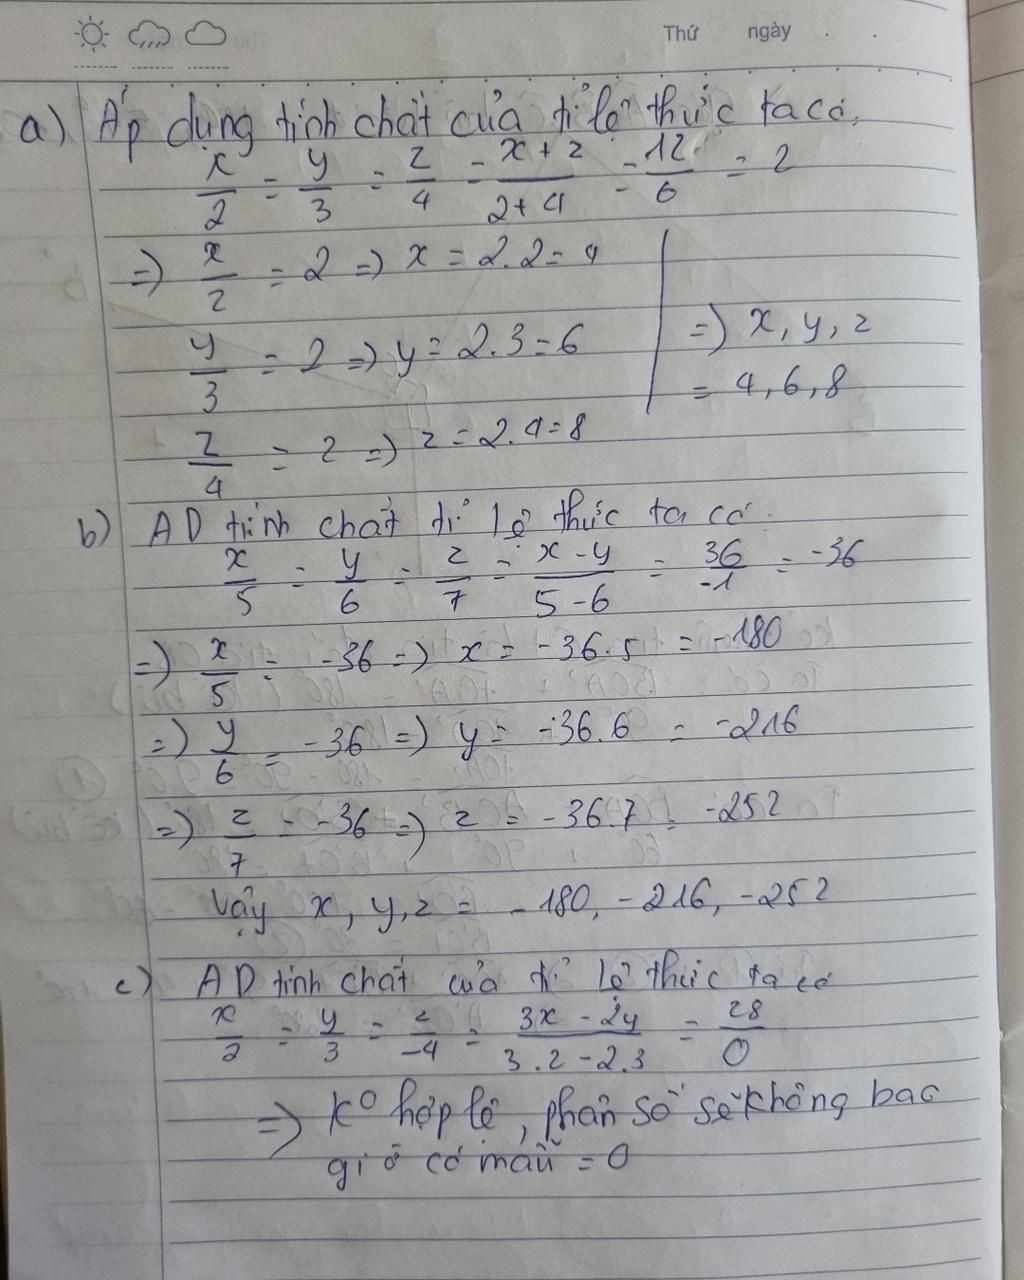 Thứ ngày . .
a) Áp dụng tính chất của tỉ lệ thức ta có.
x/2 = y/3 = z/4 = x+z/2+4 = 12/6 = 2
=) x/2 = 2 =) x = 2.2 = 4
y/3 = 2 =) y = 2.3 = 6
z/4 = 2 =) z = 2.4 = 8
=) x, y, z
= 4, 6, 8
b) AD tính chất tỉ lệ thức ta có.
x/5 = y/6 = z/7 = x-y/5-6 = 36/-1 = -36
=) x/5 = -36 =) x = -36.5 = -180
=) y/6 = -36 =) y = -36.6 = -216
=) z/7 = -36 =) z = -36.7 = -252
Vậy x, y, z = -180, -216, -252
c) AD tính chất của tỉ lệ thức ta có
x/2 = y/3 = z/-4 = 3x-2y/3.2-2.3 = 28/0
=> K° hợp lệ, phân số sẽ không bao
giờ có mẫu = 0